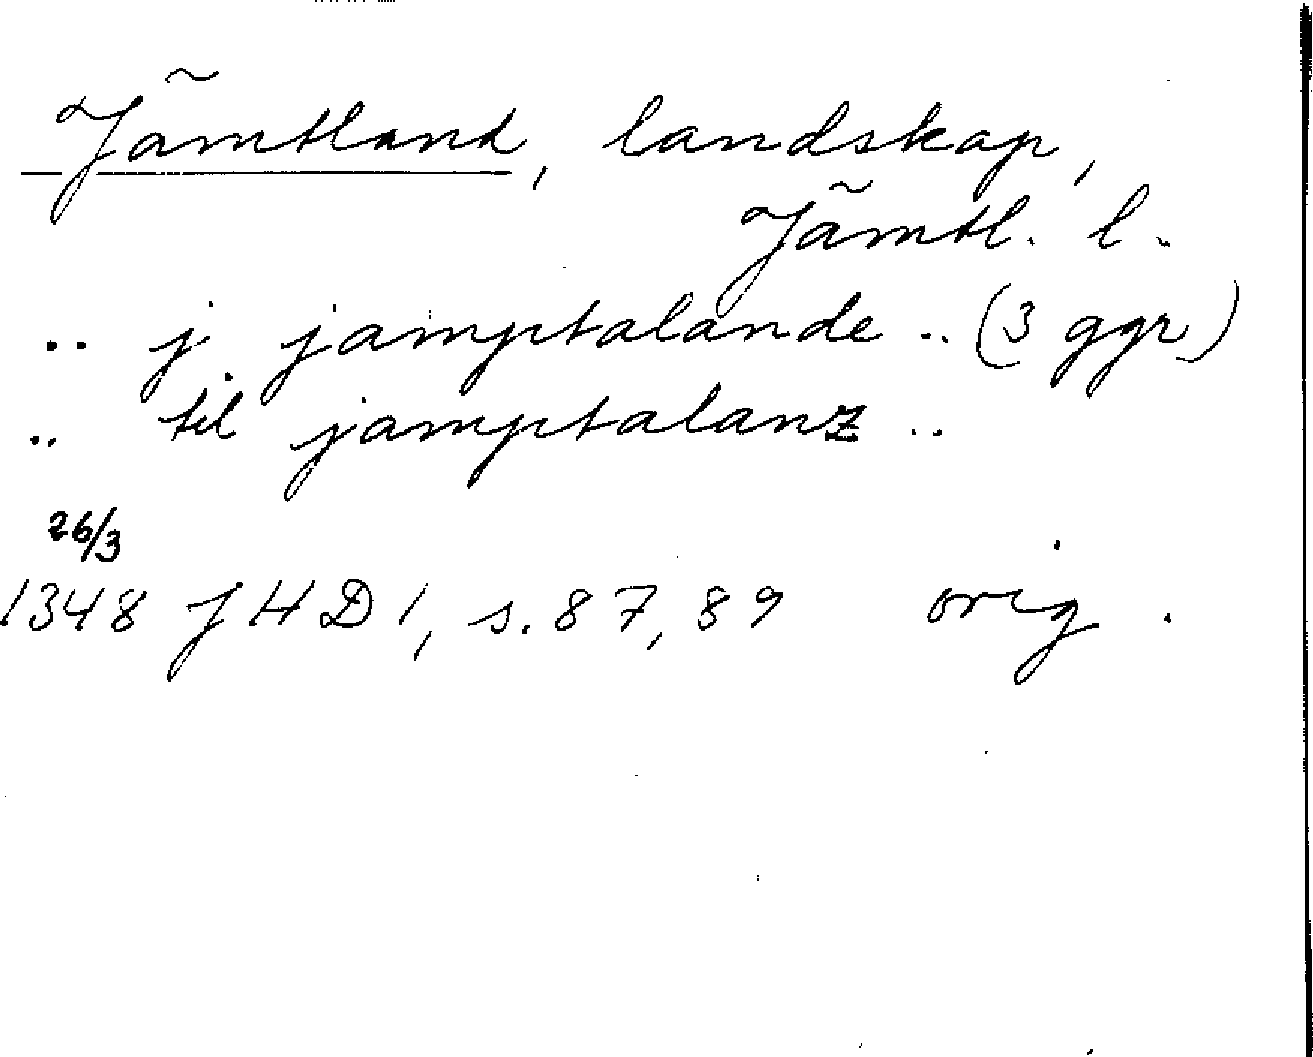 Jämtland, landskap,
Jämtl. l.
.. j jamptalande .. (3 ggr)
.. til jamptalanz ..
26/3
1348 JHD 1, s. 87, 89 orig.